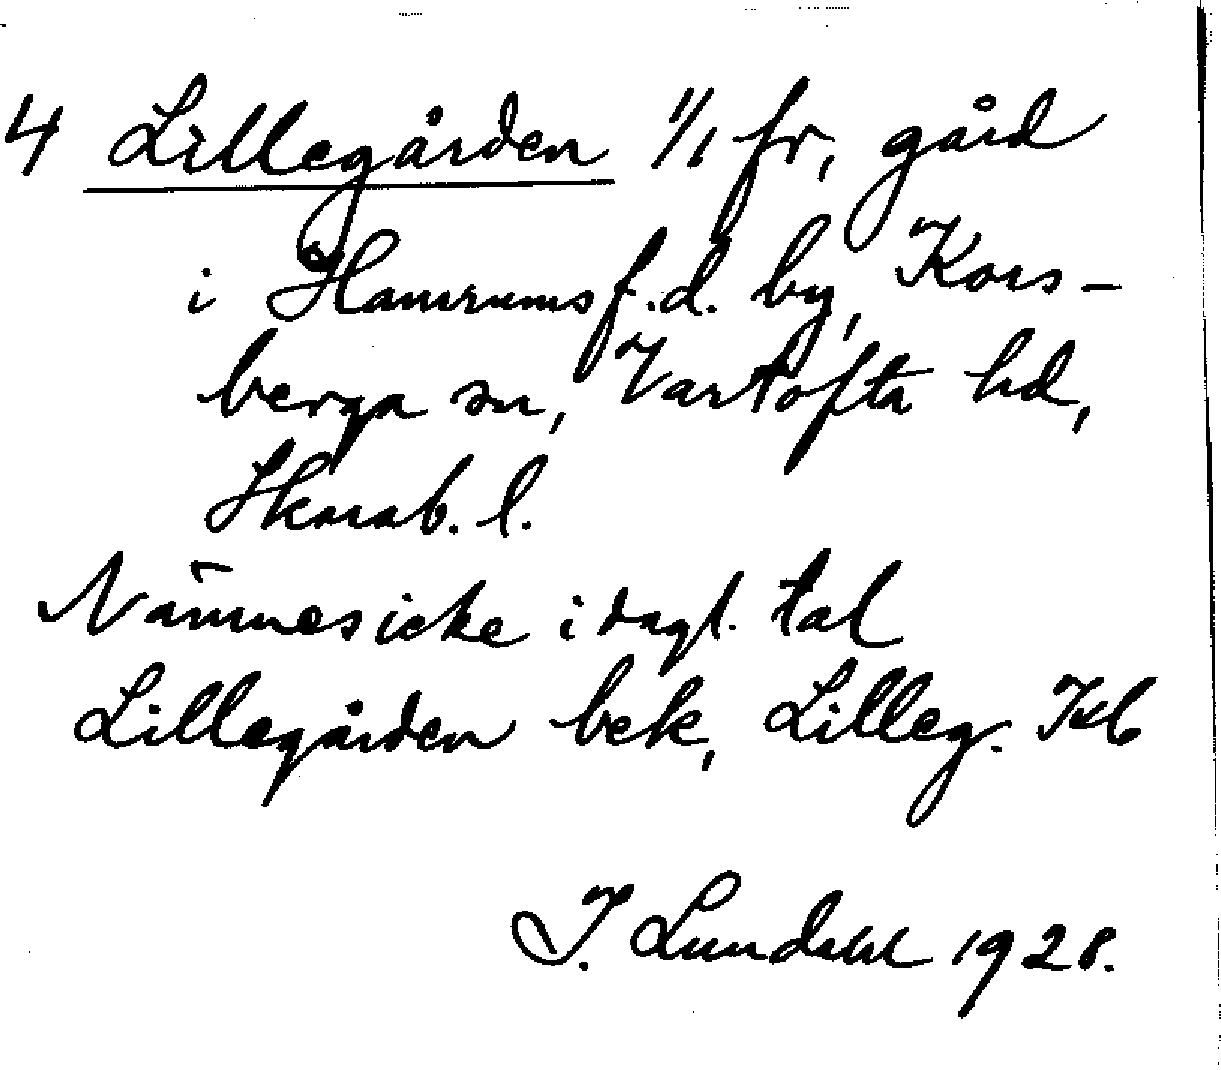 4 Lillegården 1/1 fr, gård
i Hamrums f.d. by, Kors-
berga sn, Vartofta hd,
Skarab. l.
Nämnes icke i dagl. tal
Lillegården bek, Lilleg. Kb
I. Lundahl 1928.